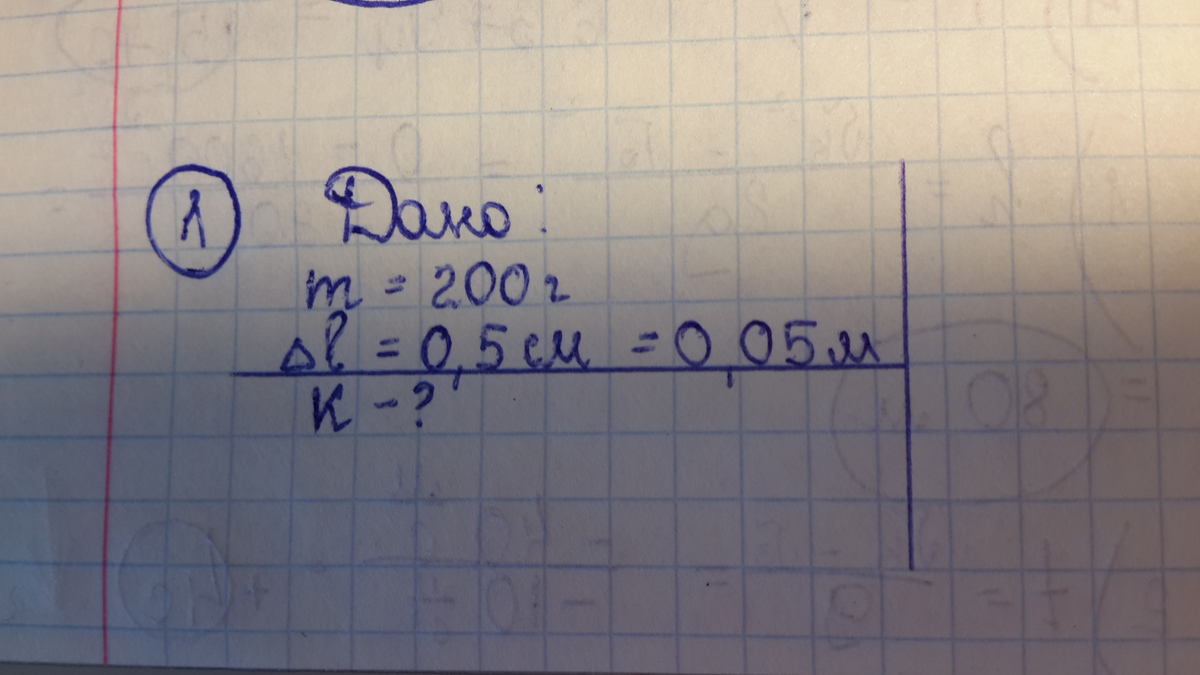 1 Дано:
m = 200г
Δl = 0,5см = 0,05м
К - ?